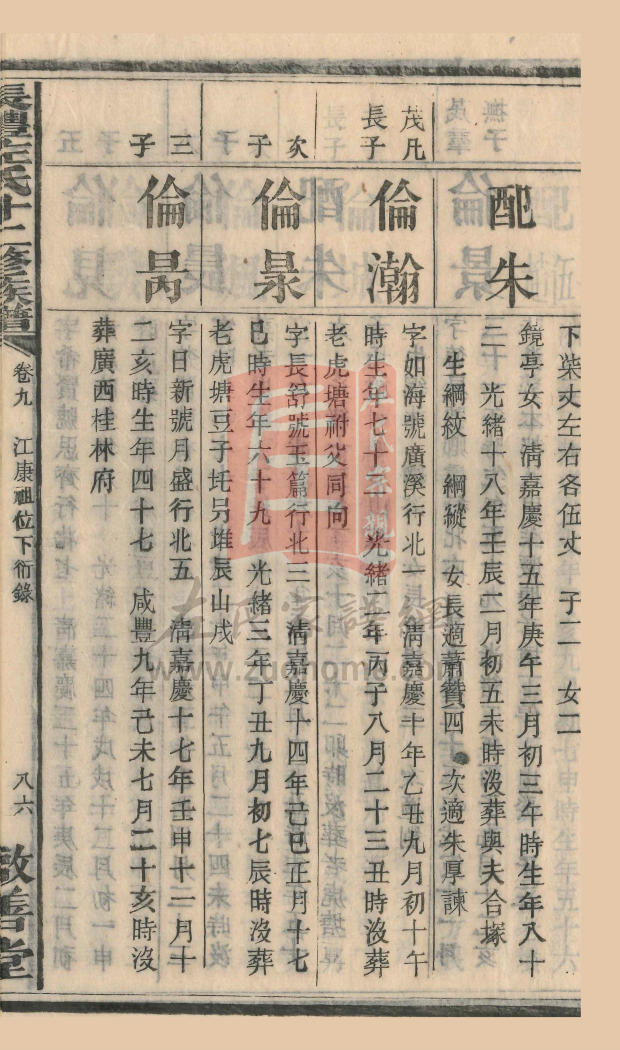 下柴丈左右各伍丈 子二 女二
配朱
鏡亭女 清嘉慶十五年庚午三月初三午時生年八十
二 光緒十八年壬辰二月初五未時沒葬與夫合塚
生綱紋 綱縱 女長適蕭贊四 次適朱厚諫
茂凡
長子
倫瀚
字如海號廣溪行北一 清嘉慶十年乙丑九月初十午
時生年七十二 光緒二年丙子八月二十三丑時沒葬
老虎塘祔父同向
次
子
倫㬎
字長舒號玉篇行北三 清嘉慶十四年己巳正月十七
巳時生年六十九 光緒三年丁丑九月初七辰時沒葬
老虎塘豆子圫另堆辰山戌
三
子
倫昺
字日新號月盛行北五 清嘉慶十七年壬申十二月十
二亥時生年四十七 咸豐九年己未七月二十亥時沒
葬廣西桂林府
長豐左氏十二修族譜
卷九 江康祖位下衍錄
八六
敦善堂
左氏家譜網
www.zuohome.com